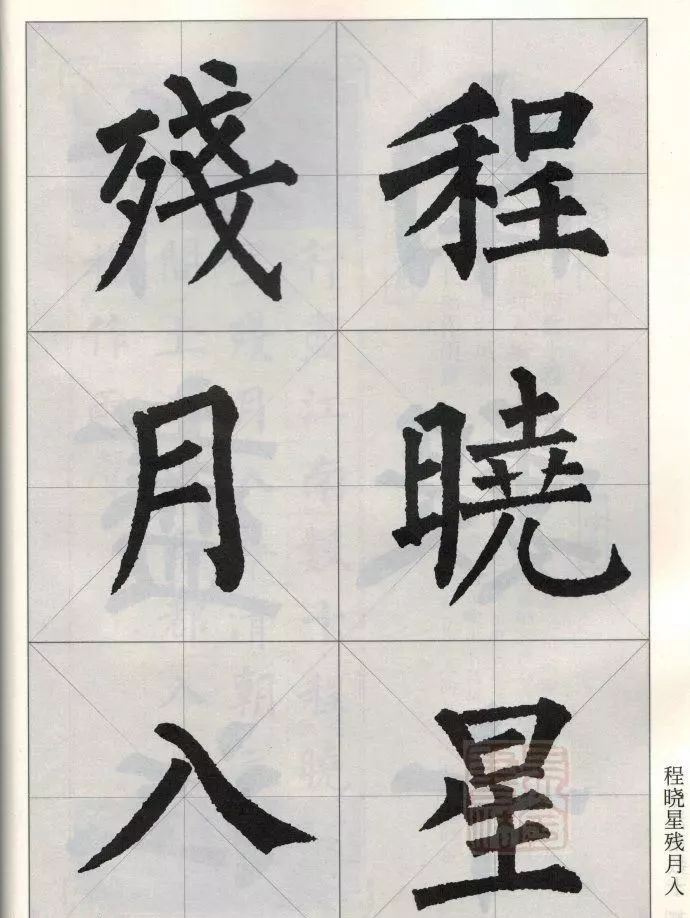 程曉星
殘月入
程晓星残月入